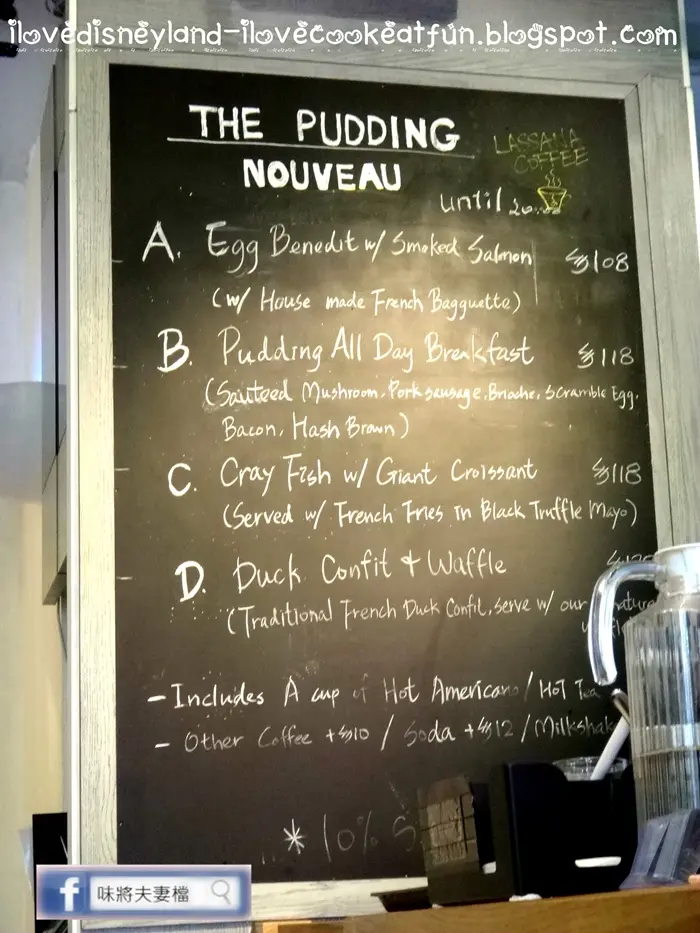 ilovedisneyland-ilovecookeatfun.blogspot.com
THE PUDDING
NOUVEAU
LASSANA
COFFEE
until
A. Egg Benedit w/ Smoked Salmon $108
(w/ House made French Bagguette)
B. Pudding All Day Breakfast $118
(Sauteed Mushroom, Pork sausage, Brioche, Scramble Egg,
Bacon, Hash Brown)
C. Cray Fish w/ Giant Croissant $118
(Served w/ French Fries in Black Truffle Mayo)
D. Duck Confit & Waffle
(Traditional French Duck Confit, serve w/ our
- Includes A cup of Hot Americano / Hot Tea
- Other Coffee +$10 / Soda +$12 / Milkshak
* 10% S
f 味將夫妻檔